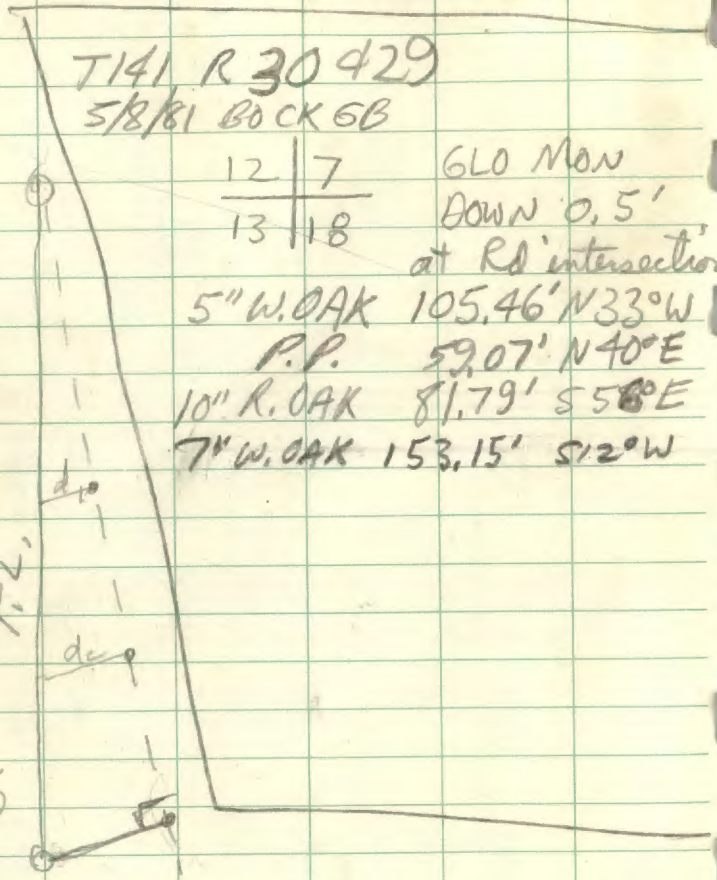 T141 R 30 &29
5/8/81 BOCK GB
12 7 GLO MON
13 18 DOWN 0.5'
at Rd intersection
5" W. OAK 105.46' N33°W
P.P. 59.07' N40°E
10" R. OAK 81.79' S56°E
7" W. OAK 153.15' S12°W
d
d